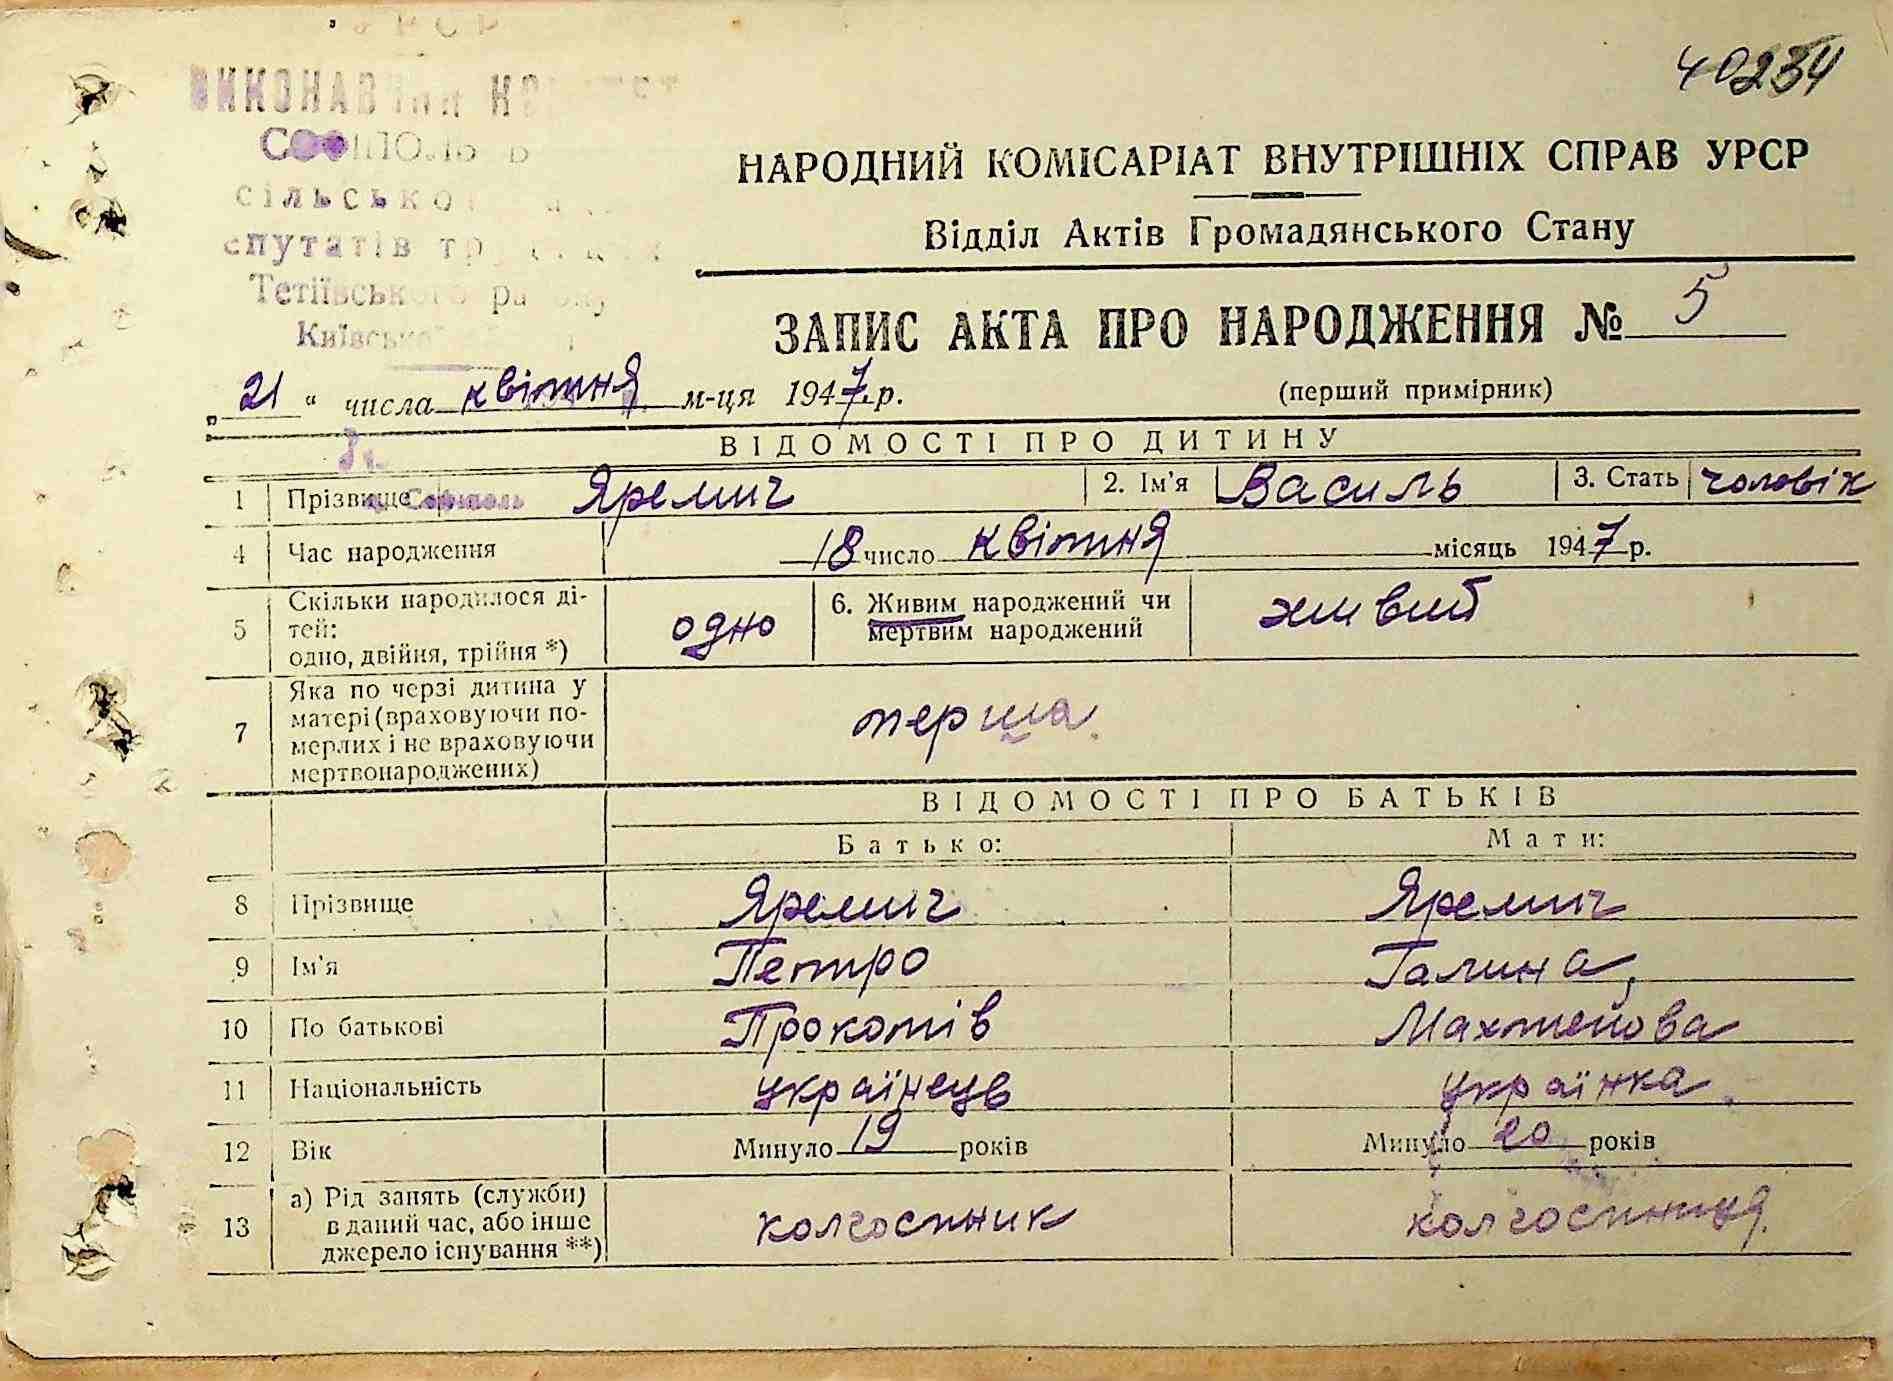 40234
ВИКОНАВЧИЙ КОМІТЕТ
сільсько
епутатів тр
Тетіївського району
Київської
НАРОДНИЙ КОМІСАРІАТ ВНУТРІШНІХ СПРАВ УРСР
Відділ Актів Громадянського Стану
ЗАПИС АКТА ПРО НАРОДЖЕННЯ № 5
„ 21 “ числа квітня м-ця 1947 р. (перший примірник)
ВІДОМОСТІ ПРО ДИТИНУ
1 Прізвище Яремич 2. Ім'я Василь 3. Стать чоловік
с. Софіполь
4 Час народження 18 число квітня місяць 1947 р.
5 Скільки народилося ді-
тей:
одно, двійня, трійня *) одно 6. Живим народжений чи
мертвим народжений живий
7 Яка по черзі дитина у
матері (враховуючи по-
мерлих і не враховуючи
мертвонароджених) перша
ВІДОМОСТІ ПРО БАТЬКІВ
Батько: Мати:
8 Прізвище Яремич Яремич
9 Ім'я Петро Галина
10 По батькові Прокопів
11 Національність українець українка
12 Вік Минуло 19 років Минуло 20 років
13 а) Рід занять (служби)
в даний час, або інше
джерело існування **) колгоспник колгоспниця